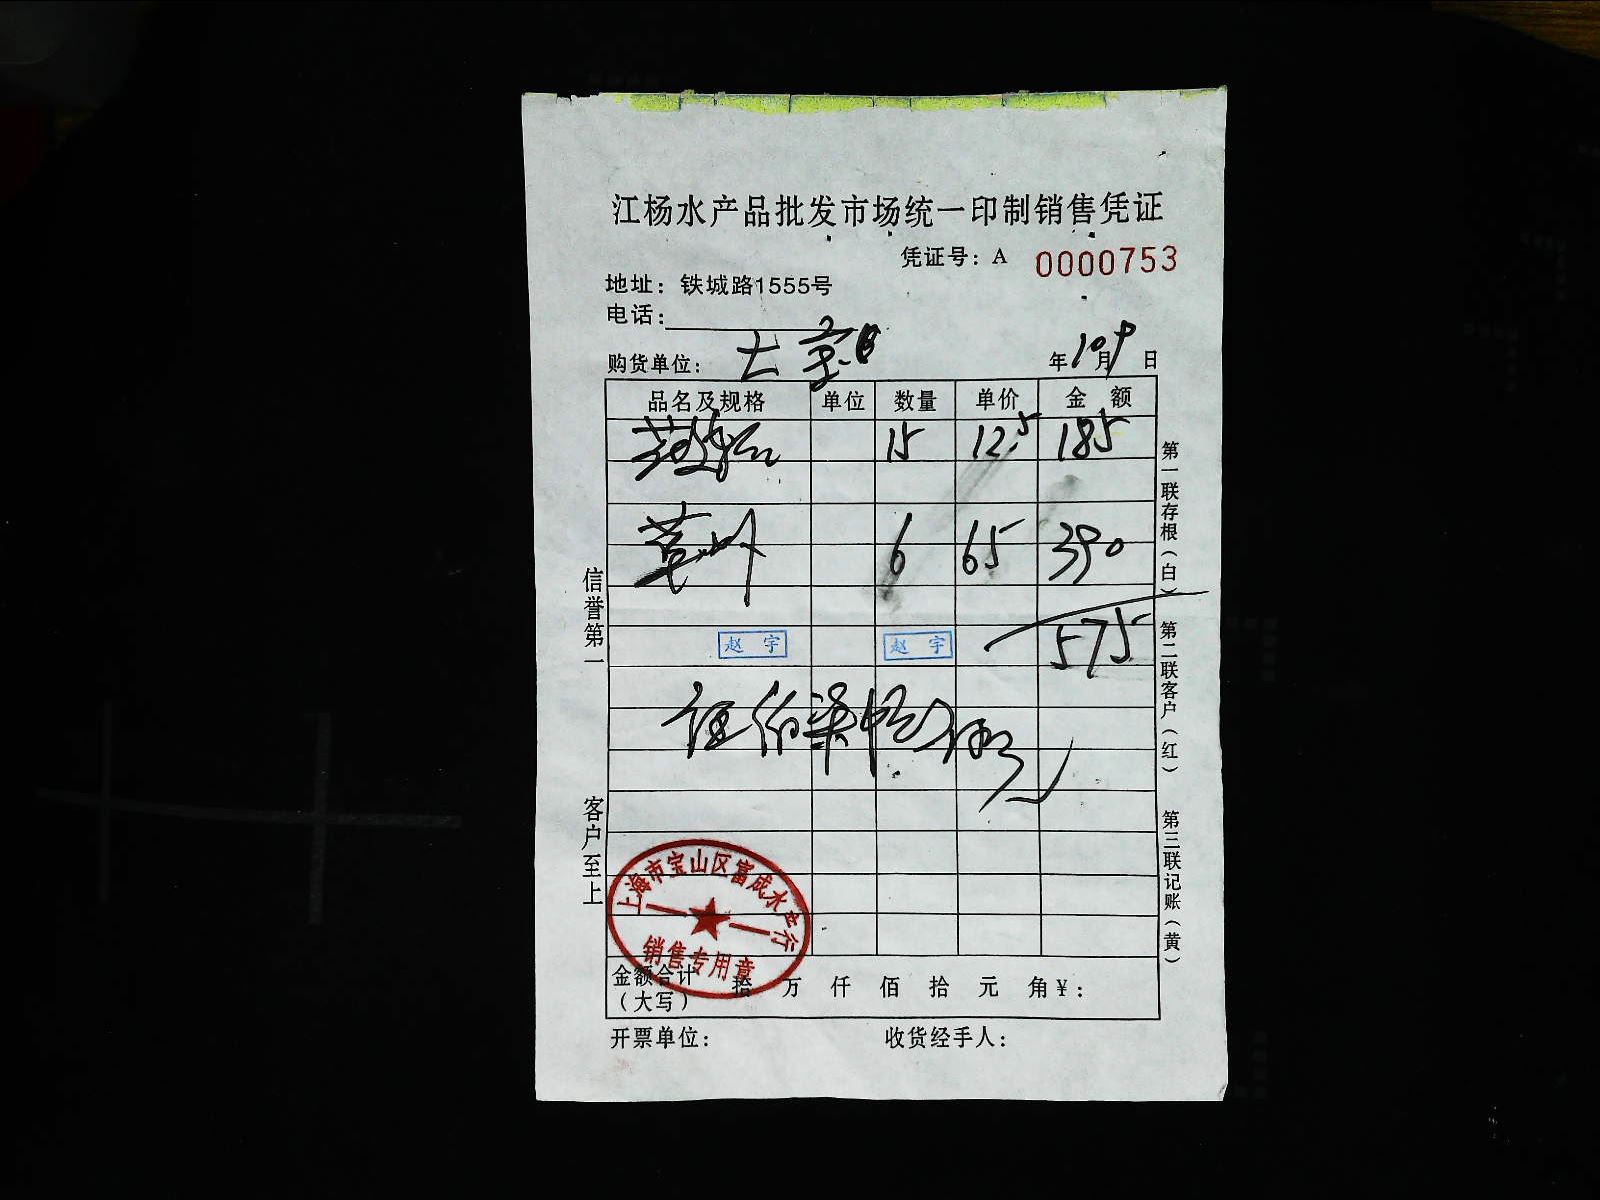 江杨水产品批发市场统一印制销售凭证
凭证号：A 0000753
地址：铁城路1555号
电话：
购货单位： 年10月9日
品名及规格 单位 数量 单价 金额
15 12.5 185
6 65 390
575
赵宇 赵宇
伍佰柒拾伍元
上海市宝山区富成水产行
销售专用章
金额合计（大写） 拾 万 仟 佰 拾 元 角 ¥：
开票单位： 收货经手人：
信誉第一
客户至上
第一联存根（白）
第二联客户（红）
第三联记账（黄）